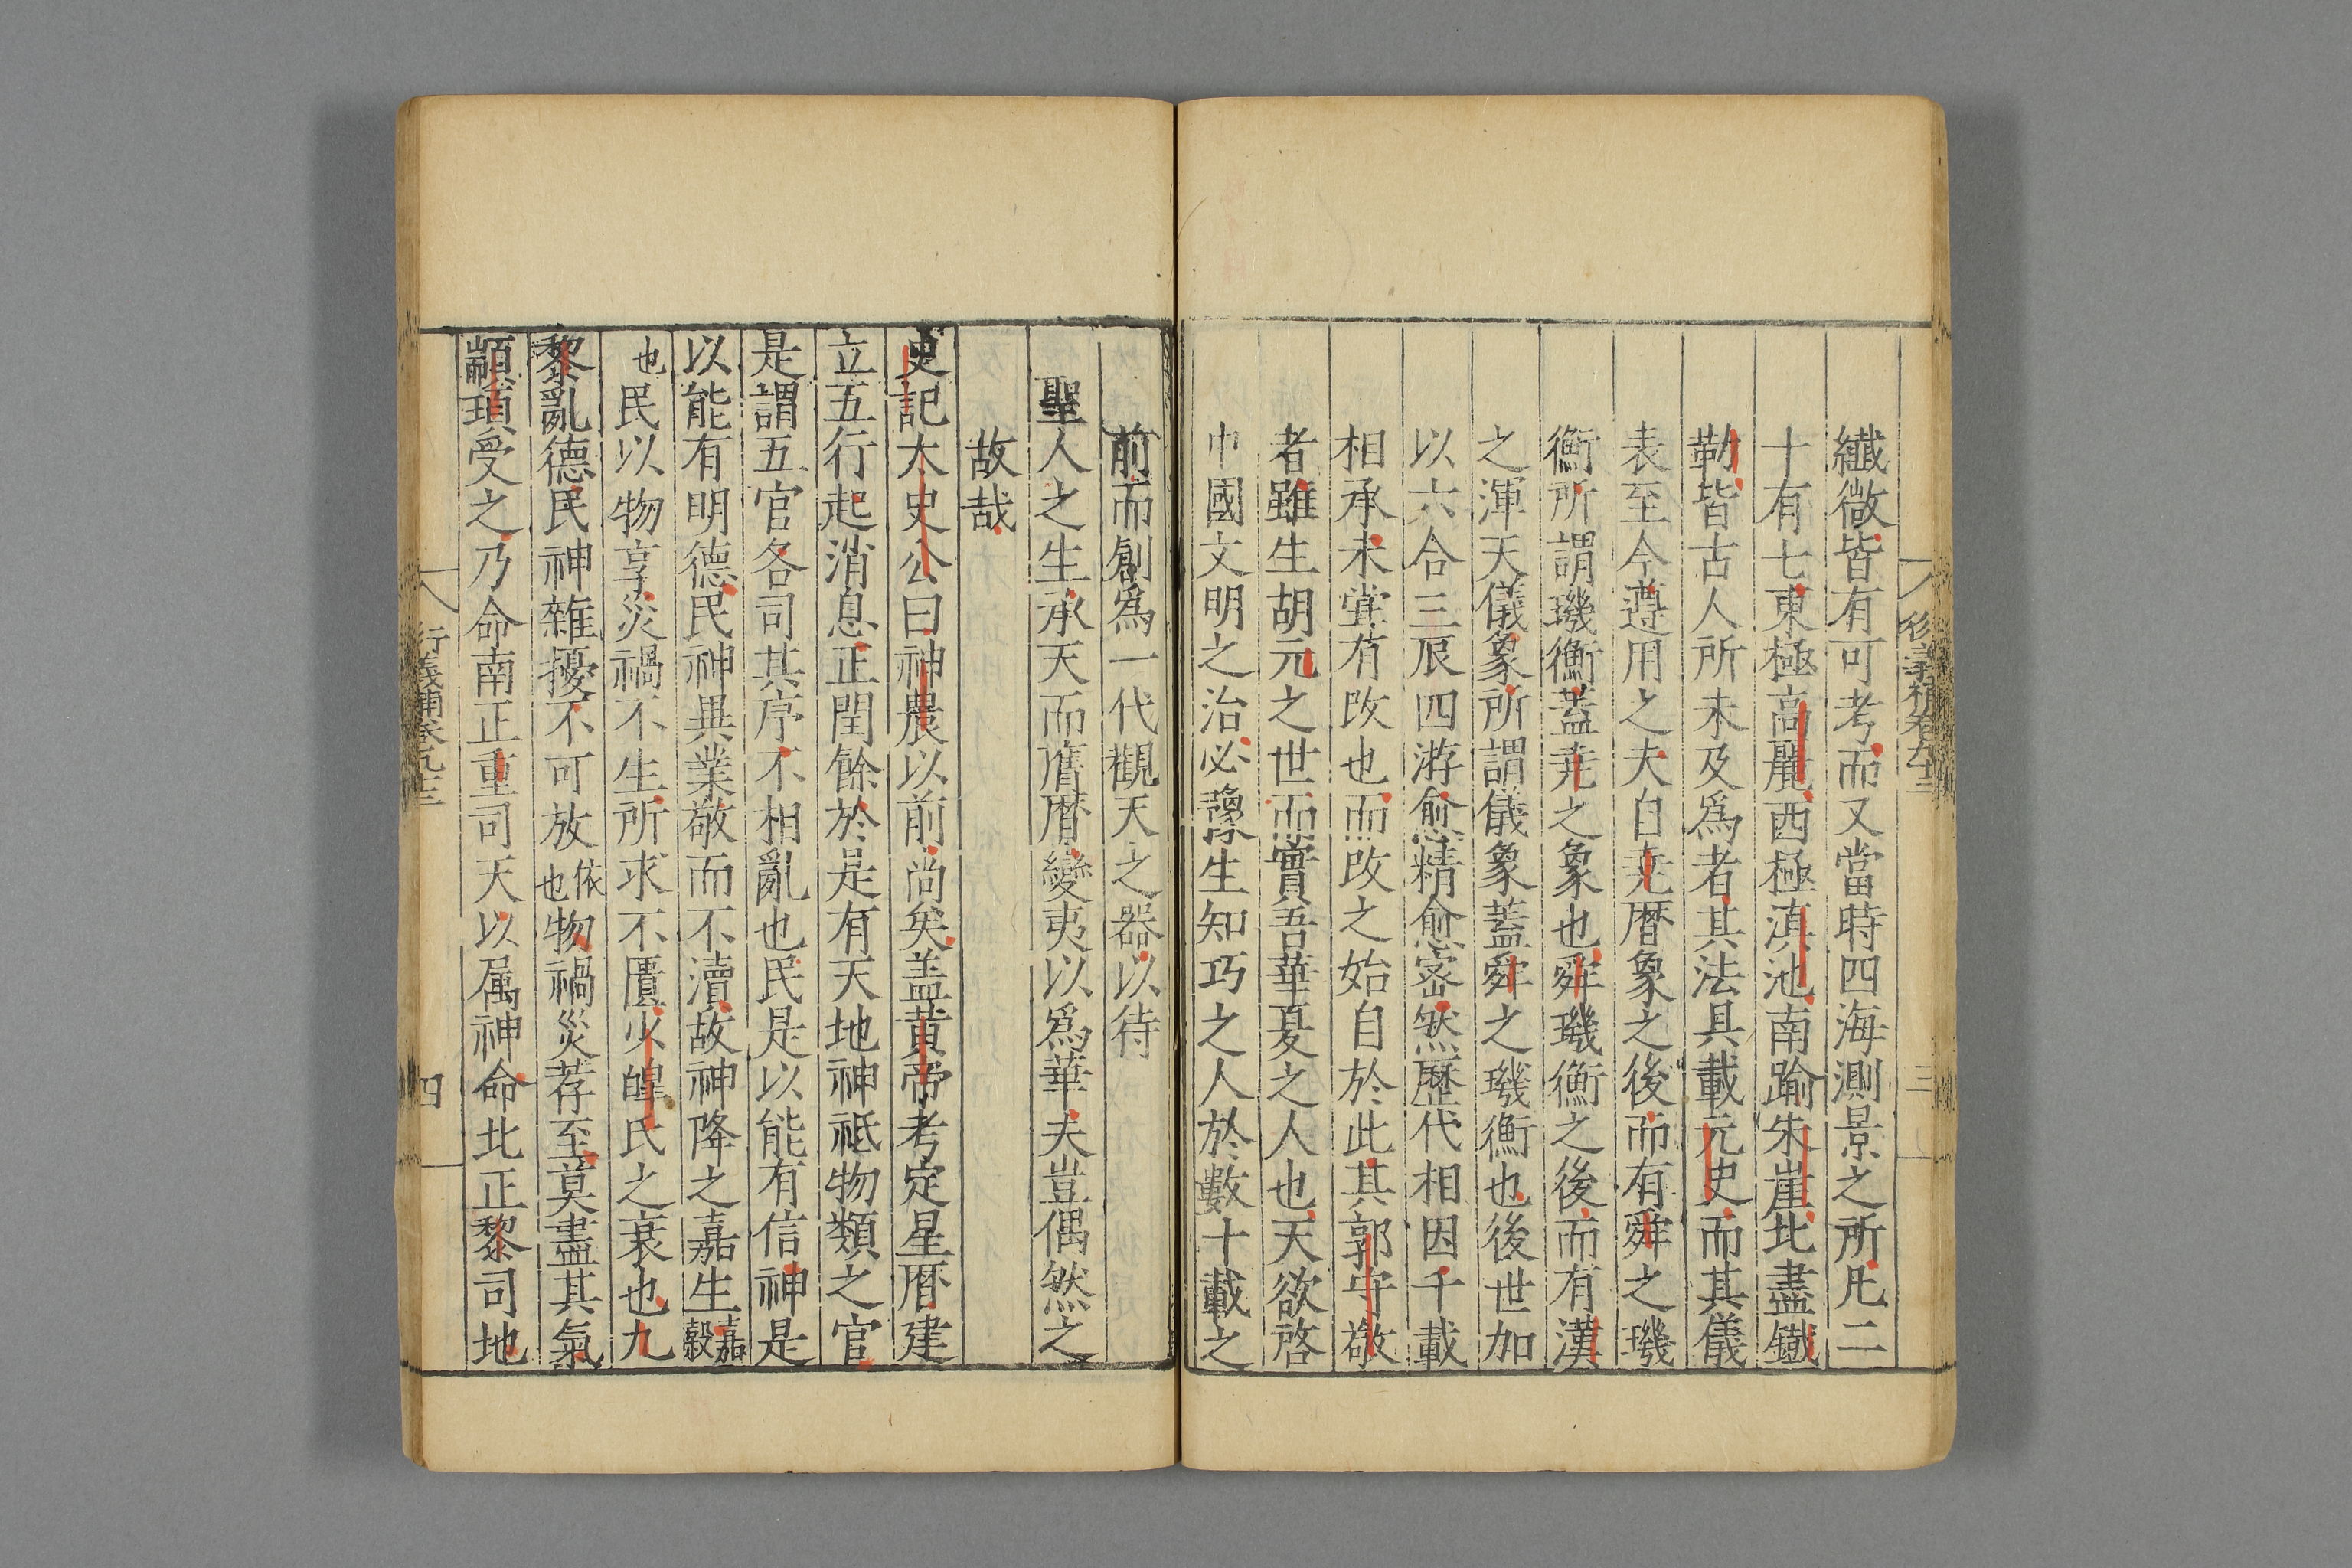 衍義補卷九十三
三
纎微皆有可考而又當時四海測景之所凡二
十有七東極高麗西極滇池南踰朱崖北盡鐵
勒皆古人所未及爲者其法具載元史而其儀
表至今遵用之夫自堯曆象之後而有舜之璣
衡所謂璣衡蓋堯之象也舜璣衡之後而有漢
之渾天儀象所謂儀象蓋舜之璣衡也後世加
以六合三辰四游愈精愈密然歷代相因千載
相承未甞有改也而改之始自於此其郭守敬
者雖生胡元之世而實吾華夏之人也天欲啓
中國文明之治必豫生知巧之人於數十載之
前而創爲一代觀天之器以待
聖人之生承天而膺曆變夷以爲華夫豈偶然之
故哉
史記太史公曰神農以前尚矣盖黄帝考定星曆建
立五行起消息正閏餘於是有天地神祇物類之官
是謂五官各司其序不相亂也民是以能有信神是
以能有明德民神異業敬而不瀆故神降之嘉生嘉穀
也民以物享災禍不生所求不匱少皥氏之衰也九
黎亂德民神雜擾不可放依也物禍災荐至莫盡其氣
顓頊受之乃命南正重司天以属神命北正黎司地
衍義補卷九十三
四